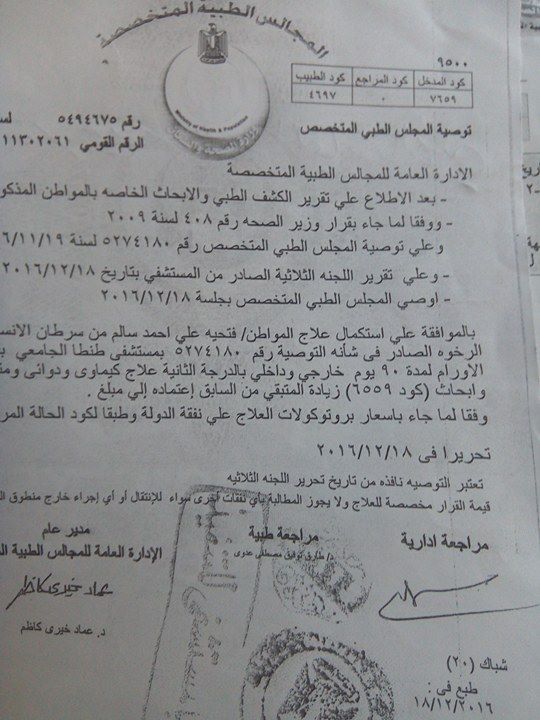 المجالس الطبية المتخصصة
Ministry of Health & Population
٩٥٠٠
كود المدخل كود المراجع كود الطبيب
٧٦٥٩ ٠ ٤٦٩٧
توصية المجلس الطبي المتخصص
رقم ٥٤٩٤٦٧٥ لسن
الرقم القومي ١١٣٠٢٠٦١
الادارة العامة للمجالس الطبية المتخصصة
- بعد الاطلاع علي تقرير الكشف الطبي والابحاث الخاصه بالمواطن المذكو
- ووفقا لما جاء بقرار وزير الصحه رقم ٤٠٨ لسنة ٢٠٠٩
وعلي توصية المجلس الطبي المتخصص رقم ٥٢٧٤١٨٠ لسنة ٦/١١/١٩
- وعلي تقرير اللجنه الثلاثية الصادر من المستشفي بتاريخ ٢٠١٦/١٢/١٨
- اوصي المجلس الطبي المتخصص بجلسة ٢٠١٦/١٢/١٨
بالموافقة علي استكمال علاج المواطن/ فتحيه علي احمد سالم من سرطان الانس
الرخوه الصادر فى شأنه التوصية رقم ٥٢٧٤١٨٠ بمستشفي طنطا الجامعي
الاورام لمدة ٩٠ يوم خارجي وداخلي بالدرجة الثانية علاج كيماوى ودوائى ومت
وابحاث (كود ٦٥٥٩) زيادة المتبقي من السابق إعتماده إلي مبلغ .
وفقا لما جاء باسعار بروتوكولات العلاج علي نفقة الدولة وطبقا لكود الحالة المر
تحريرا فى ٢٠١٦/١٢/١٨
تعتبر التوصيه نافذه من تاريخ تحرير اللجنه الثلاثيه
قيمة القرار مخصصة للعلاج ولا يجوز المطالبة بأي نفقات أخرى سواء للإنتقال أو أي إجراء خارج منطوق ال
مراجعة ادارية
مراجعة طبية
د/ طارق توفيق مصطفي عدوى
مدير عام
الإدارة العامة للمجالس الطبية ال
عماد خيرى كاظم
د. عماد خيرى كاظم
شباك (٢٠)
طبع فى :
١٨/١٢/٢٠١٦